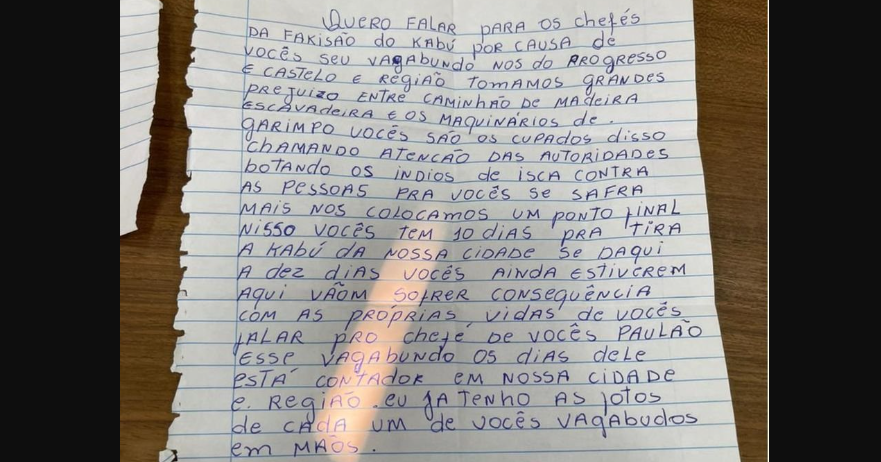 QUERO FALAR PARA OS Chefés
DA FAKISÃO do KABÚ POR CAUSA de
VOCÊS SEU VAGABUNDO NOS DO PROGRESSO
E CASTELO E REGIÃO TOMAMOS GRANDES
PREJUIZO ENTRE CAMINHÃO DE MADEIRA
ESCAVADEIRA E OS MAQUINÁRIOS de.
GARIMPO VOCÊS SÃO OS CUPADOS DISSO
CHAMANDO ATENCÃO DAS AUTORIDADES
bOTANDO OS ÍNDIOS de ISCA CONTRA
AS PESSOAS PRA VOCÊS SE SAFRA
MAIS NOS COLOCAMOS UM PONTO fINAL
NISSO VOCÊS TEM 10 DIAS PRA TIRA
A KABÚ DA NOSSA CIDADE SE DAQUI
A dEZ dIAS VOCÊS AINDA ESTIVEREM
AQUI VÃOM SOfRER CONSEQUÊNCIA
COM AS PRÓPRIAS VIDAS de VOCÊS
fALAR PRO Chefé DE VOCÊS PAULÃO
ESSE VAGABUNDO OS DIAS DELE
eSTÁ CONTADOR EM NOSSA CIDADE
e. REGIÃO. eU JA TENHO AS fOTOS
de CADA UM de VOCÊS VAGABUDOS
em MÃOS.